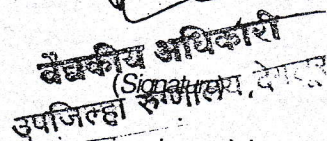 वैद्यकीय अधिकारी
(Signature)
उपजिल्हा रुग्णालय,